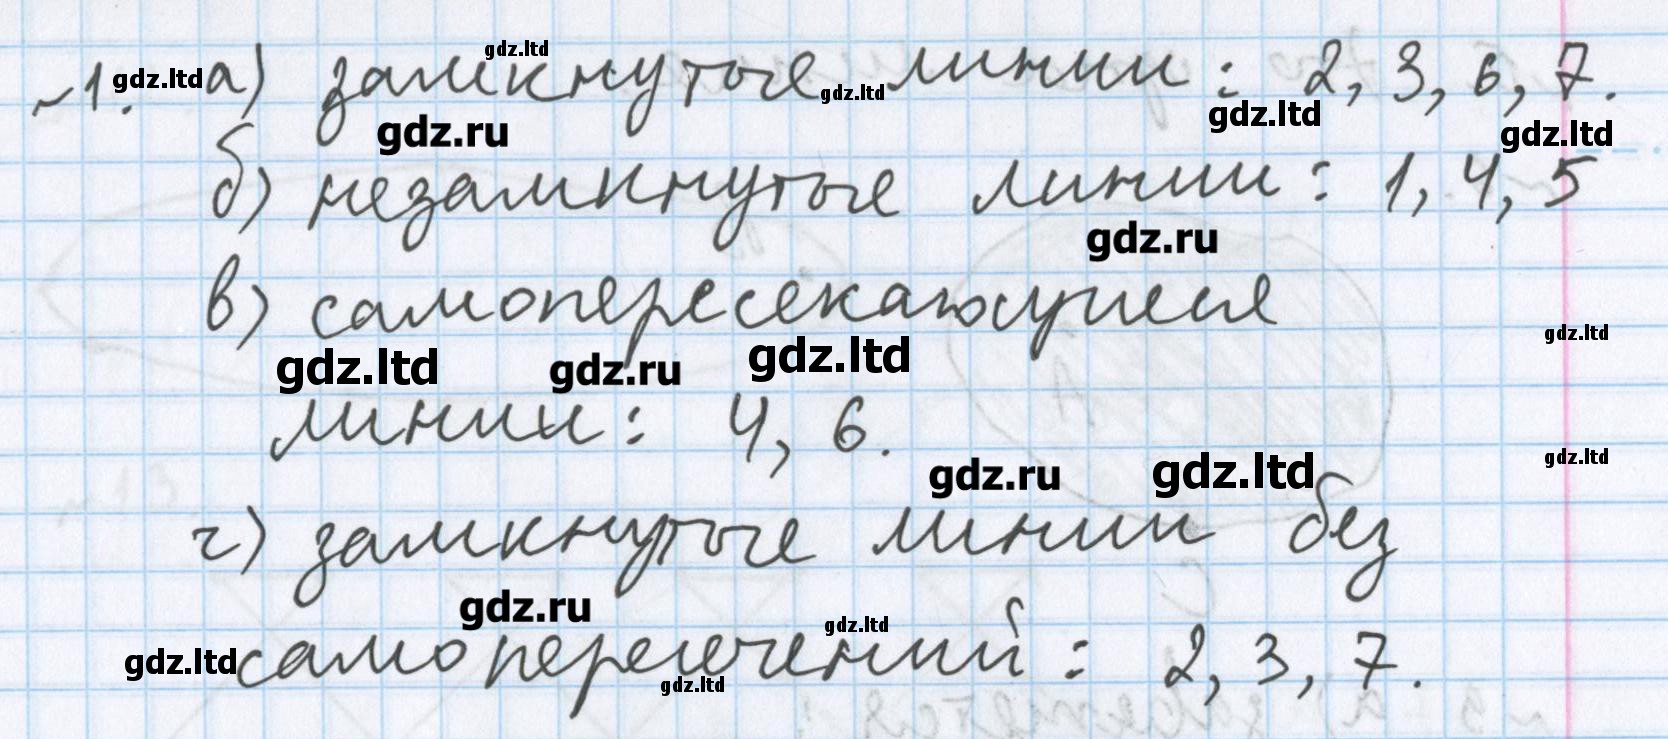 №1. а) замкнутые линии: 2, 3, 6, 7.
б) незамкнутые линии: 1, 4, 5
в) самопересекающиеся
линии: 4, 6.
г) замкнутые линии без
самопересечений: 2, 3, 7.
gdz.ltd
gdz.ltd
gdz.ltd
gdz.ltd
gdz.ru
gdz.ltd
gdz.ru
gdz.ltd
gdz.ru
gdz.ltd
gdz.ltd
gdz.ru
gdz.ltd
gdz.ltd
gdz.ru
gdz.ltd
gdz.ltd
gdz.ltd